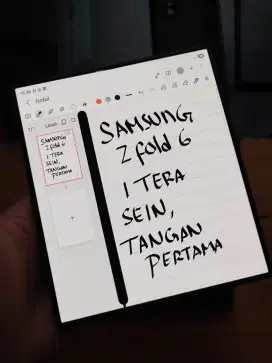 SAMSUNG
Z fold 6
1 TERA
SEIN,
TANGAN
PERTAMA
SAMSUNG
Z fold 6
1 TERA
SEIN,
TANGAN
PERTAMA